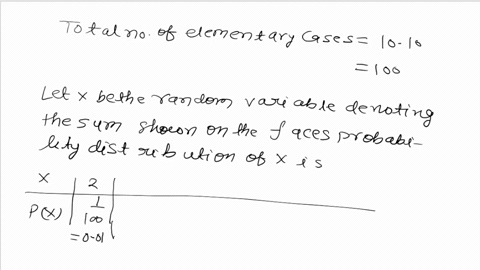 Total no. of elementary cases = 10.10
= 100
Let x be the random variable denoting
the sum shown on the faces probabi-
lity distribution of x is
X | 2
P(X) | 1/100
= 0.01